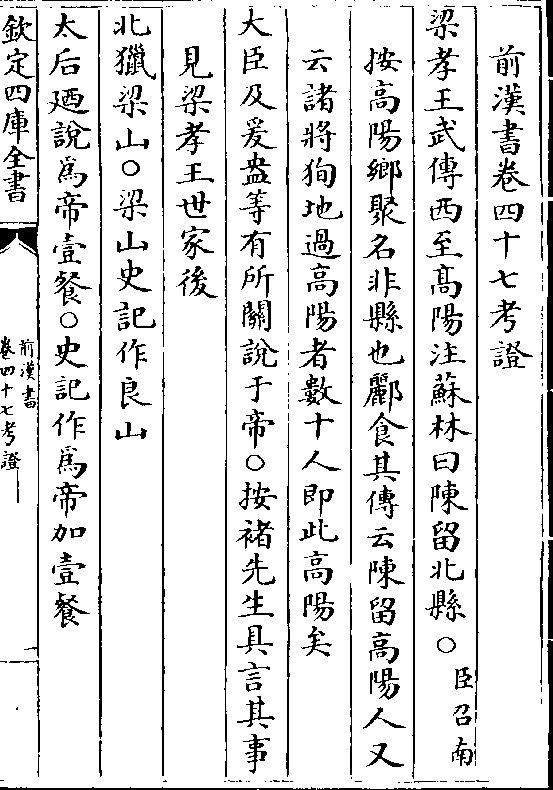 前漢書卷四十七考證
梁孝王武傳西至髙陽注蘇林曰陳留北縣○臣召南
按高陽鄉聚名非縣也酈食其傳云陳留高陽人又
云諸將狥地過高陽者數十人即此高陽矣
大臣及爰盎等有所關說于帝○按褚先生具言其事
見梁孝王世家後
北獵梁山○梁山史記作良山
太后廼說爲帝壹餐○史記作爲帝加壹餐
欽定四庫全書
前漢書
卷四十七考證
一